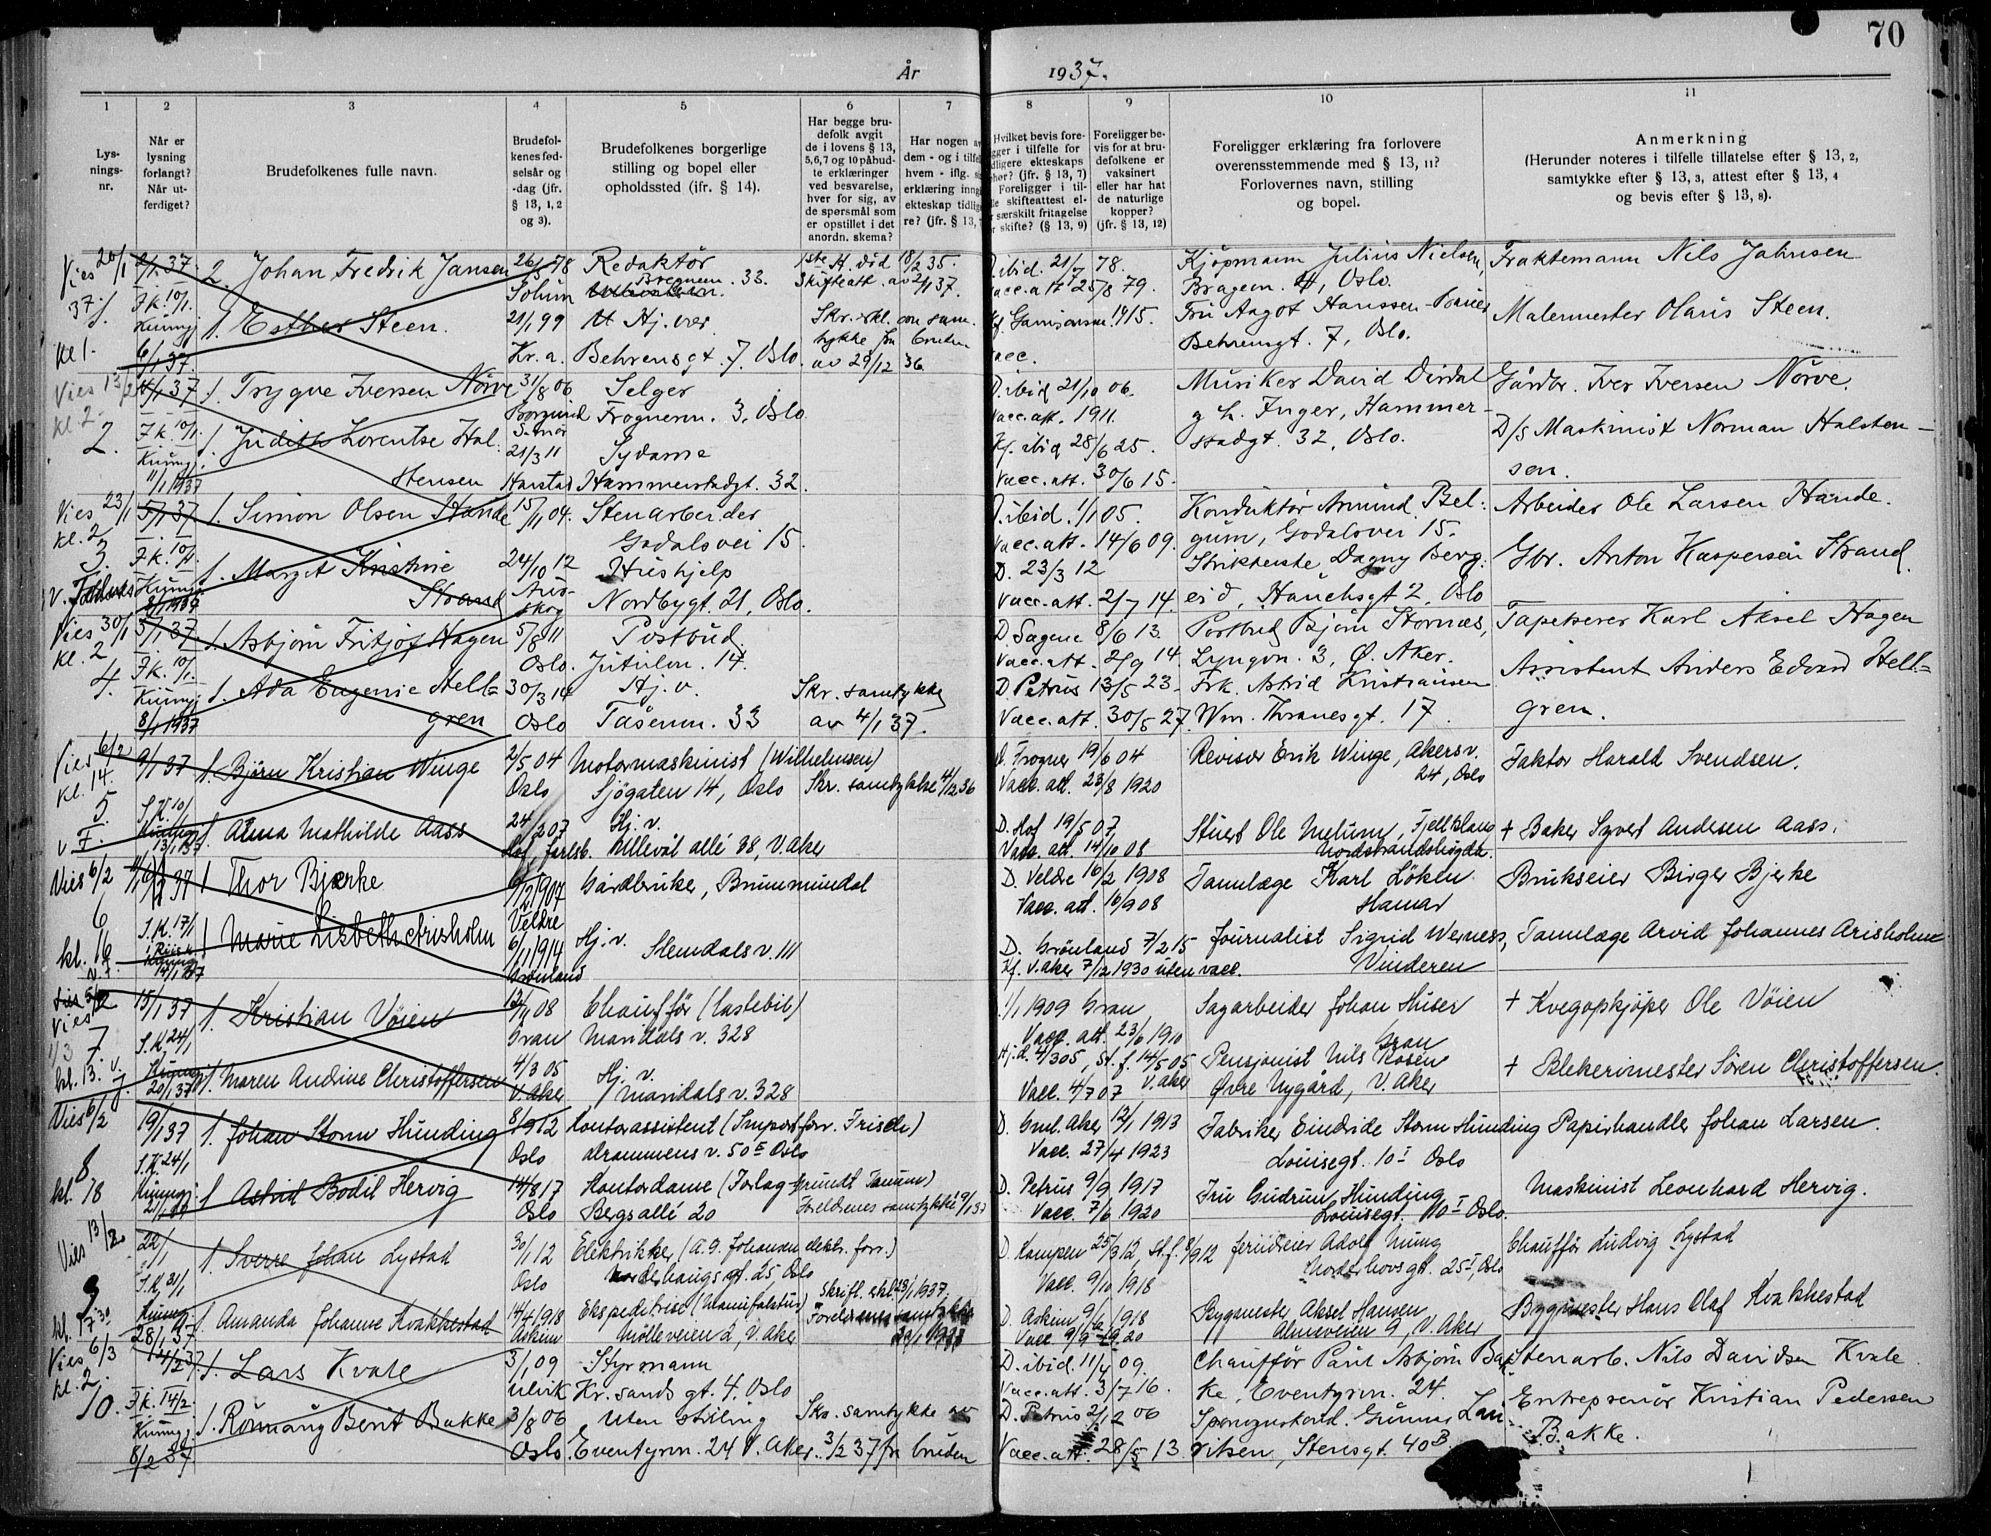 70
År 1937.
1 2 3 4 5 6 7 8 9 10 11
Lys-
nings-
nr.
Når er
lysning
forlangt?
Når ut-
ferdiget?
Brudefolkenes fulle navn.
Brudefol-
kenes fød-
selsår og
-dag (jfr.
§ 13, 1, 2
og 3).
Brudefolkenes borgerlige
stilling og bopel eller
opholdssted (jfr. § 14).
Har begge bru-
defolk avgit
de i lovens § 13,
5,6,7 og 10 påbud-
te erklæringer
ved besvarelse,
hver for sig, av
de spørsmål som
er opstillet i det
anordn. skema?
Har nogen
dem - og i
hvem - iflg.
erklæring
ekteskap
re? (jfr. § 13,
Hvilket bevis fore-
i tilfelle for
ekteskaps
(jfr. § 13, 7)
Foreligger i til-
skifteattest el-
særskilt fritagelse
skifte? (§ 13, 9)
Foreligger be-
vis for at bru-
defolkene er
vaksinert
eller har hat
de naturlige
kopper?
(jfr. § 13, 12)
Foreligger erklæring fra forlovere
overensstemmende med § 13, 11?
Forlovernes navn, stilling
og bopel.
Anmerkning
(Herunder noteres i tilfelle tillatelse efter § 13, 2,
samtykke efter § 13, 3, attest efter § 13, 4
og bevis efter § 13, 8).
Vies 20/1 2/1.37. 2. Johan Fredrik Jansen 26/5 78 Redaktör 18/2 35. ibid. 21/7 78. Kjöpmann Julius Nielsen, Fraktemann Nils Jahnsen
37. Solum 33. Skifteatt. av 2/1 37. vacc.att 25/8 79. Oslo.
1. Esther Steen. 21/1 99 Hj.vær 1915. Fru Aagot Hanssen Malermester Olaris Steen.
kl 1. 6/1 37. Kr.a. Behrensgt. 7, Oslo. av 29/12 36. Behrensgt. 7, Oslo.
Vies 13/2 4/1 37 1. Trygve Iversen Nørve 31/8 06 Selger D. ibid 21/10 06. Musiker David Dirdal Gårdbr. Iver Iversen Nørve.
kl. 2. Borgund Frognerv. 3, Oslo vacc. att. 1911. g. L. Inger, Hammer-
2. F.k. 10/1. 1. Judith Lorentse Hal- S-mör Kf. ibid 28/6 25. stadgt. 32, Oslo. D/S Maskinist Norman Halsten-
Kunng. 21/3 11 Sydame
11/1 1937 stensen Harstad Hammerstadgt. 32. Vacc. att. 30/6 15. sen.
Vies 23/1 5/1 37 1. Simon Olsen Hande 15/11 04. Stenarbeider ibid. 1/1 05. Konduktör Armund Bel- Arbeider Ole Larsen Hande.
kl. 2 Godalsvei 15. Vacc. att. 14/6 09. gum, Godalsvei 15.
3. F.k. 10/1 1. Margit Kristine 24/10 12 Hushjelp D. 23/3 12 Strikkerske Dagny Berg- Gbr. Anton Kaspersen Strand.
Kunng. Strand Aurskog Nordbygt. 21, Oslo. Vacc. att. 2/7 14. eid, Hauchsgt 2, Oslo
8/1 1937
Vies 30/1 5/1 37 1. Asbjørn Fritjof Hagen 5/8 11 Postbud D Sagene 8/6 13. Postbud Bjørn Stornæs, Tapetserer Karl Aksel Hagen
kl. 2 Oslo. Jutulvn. 14. Vacc. att. 2/9 14. Lyngvn. 3, Ø. Aker.
4. F.k. 10/1. 1. Ada Eugenie Hell- 30/3 14 Hj. v. Skr. samtykke D Petrus 13/5 23. Frk. Astrid Kristiansen Assistent Anders Edvard Hell-
Kunng. gren Oslo Tåsenvn. 33 av 4/1 37. Vacc. att. 30/5 27. Wm. Thranesgt. 17. gren.
8/1 1937
Vies 6/2 9/1 37 1. Björn Kristian Winge 2/5 04 Motormaskinist (Wilhelmsen) D. Frogner 19/6 04 Revisor Erik Winge, Akersv. Faktor Harald Svendsen.
kl. 14. Oslo Sjögaten 14, Oslo Skr. samtykke 4/12 36 Vacc. att. 23/8 1920 24, Oslo
5. S.K. 10/1 1. Alma Mathilde Aass 24/2 07 Hj. v. D. Hof 19/5 07 Stuert Ole Melum, + Baker Syvert Andersen Aass.
Kunng. 13/1 37 Hof, Jarlsb. Ullevål allé 38, V. Aker Vacc. att. 14/10 08 Nordstrandshögda.
Vies 6/2 1 Thor Bjerke 9/12 1907 Gårdbruker, Brummundal D. Veldre 16/2 1908 Tannlæge Karl Löken Brukseier Birger Bjerke
6 Veldre Vacc. att. 16/9 08 Hamar
S.K. 17/1 1 Marie Lisbeth Arisholm 6/1 1914 Hj. v. Slemdals v. 111 D. Grönland 7/2 15 Journalist Sigrid Werness, Tannlæge Arvid Johannes Arisholm
kl. 16 14/1 37 Grönland Kf. V. Aker 7/12 1930 uten vacc. Vinderen
15/1 37 1. Kristian Vöien 12/11 08 Chauffør (lastebil) 1/1 1909 Gran Sagarbeider Johan Huser + Kvegopkjöper Ole Vöien
Vies 1/3 S.K. 24/1 Gran Maridals v. 328 Vacc. att. 23/6 1910 Gran
7. Kunng. 1. Maren Andrine Christoffersen 4/3 05 Hj. v. Hj.d. 4/3 05, st.f. 14/5 05 Pensjonist Nils Rosen + Blekkerimester Sören Christoffersen.
kl. 13. 20/1 37 V. Aker Maridals v. 328 Vacc. 4/7 07 V. Aker Övre Nygård, V. Aker
Vies 6/2 19/1 37 1. Johan Storm Hunding 8/1 1912 Kontorassistent (Importforr. Frisch) D. Gml. Aker 12/1 1913 Fabrikør Eindride Storm Hunding Papirhandler Johan Larsen.
8 S.K. 24/1 Oslo Drammens v. 50 E Oslo Vacc. 27/4 1923 Louisegt. 10 I Oslo
kl. 18 Kunng. 1 Astrid Bodil Hervig 14/8 17 Kontordame (Forlag Grundt Tanum) D. Petrus 9/9 1917 Fru Gudrun Hunding Maskinist Leonhard Hervig.
21/1 37 Oslo Bergs allé 20 Foreldrenes samtykke Vacc. 7/6 1920 Louisegt. 10 I Oslo.
Vies 13/2 22/1 1. Sverre Johan Lystad 30/1 12 Elektriker (A.G. Johansen elektr. forr.) D. Kampen 25/3 12, st.f. Adolf Mung Chauffør Ludvig Lystad
S.K. 31/1 Oslo Norderhaugs gt. 25, Oslo Skriftl. erkl. 23/1 1937. Vacc. 9/10 1918 Oslo
9 Kunng. 1. Amanda Johanne Kvakkestad 14/4 1918 Ekspeditrise (Manufaktur) D. Askim Bygmester Aksel Hansen Bygmester Hans Olaf Kvakkestad
kl. 17 30 28/1 37. Askim Mölleveien 2, V. Aker Vacc. Almeveien 9, V. Aker
Vies 6/3 4/2 37. 1. Lars Kvale 3/1 09 Styrmann D. ibid. 11/4 09. Chauffør Paul Asbjørn Bak- Stenarb. Nils Davidsen Kvale
kl. 2. Ulvik Kr.sands gt. 4, Oslo Vacc. att. 3/7 16. ke, Eventyrvn. 24.
10. F.k. 14/2. 1. Rönnaug Berit Bakke 3/8 06 Uten stilling Skr. samtykke av D. Petrus 2/12 06 Gunnar Lau- Entreprenör Kristian Pedersen
Kunng. 8/2 37 Oslo. Eventyrvn. 24 V. Aker. 3/2 37 fra bruden Vacc. att. 28/5 13 ritsen, Stensgt. 40 B. Bakke.